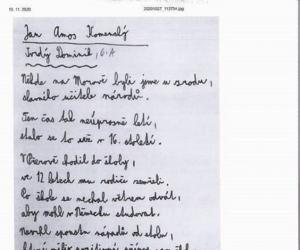 10. 11. 2020
20201027_113734.jpg
Jan Amos Komenský
Tvrdý Dominik, 6.A
Někde na Moravě byli jsme u zrodu,
slavného učitele národů.
Ten čas tak neúprosně letí,
stalo se to už v 16. století.
V Přerově chodil do školy,
ve 12 letech mu rodiče zemřeli.
Co žák se nechal větrem odvát,
aby mohl v Německu studovat.
Navrhl spoustu nápadů od stolu,